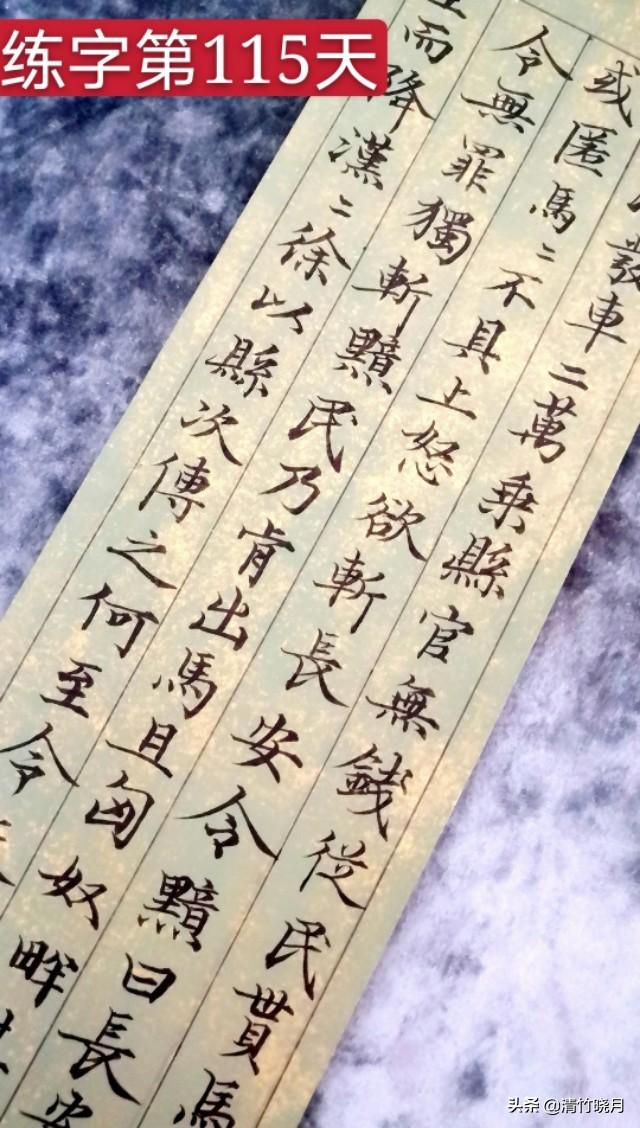 练字第115天
發車二萬乘縣官無錢從民貰馬
或匿馬〻不具上怒欲斬長安令黯曰長安
令無罪獨斬黯民乃肯出馬且匈奴畔
而降漢〻徐以縣次傳之何至令
头条 @清竹晓月